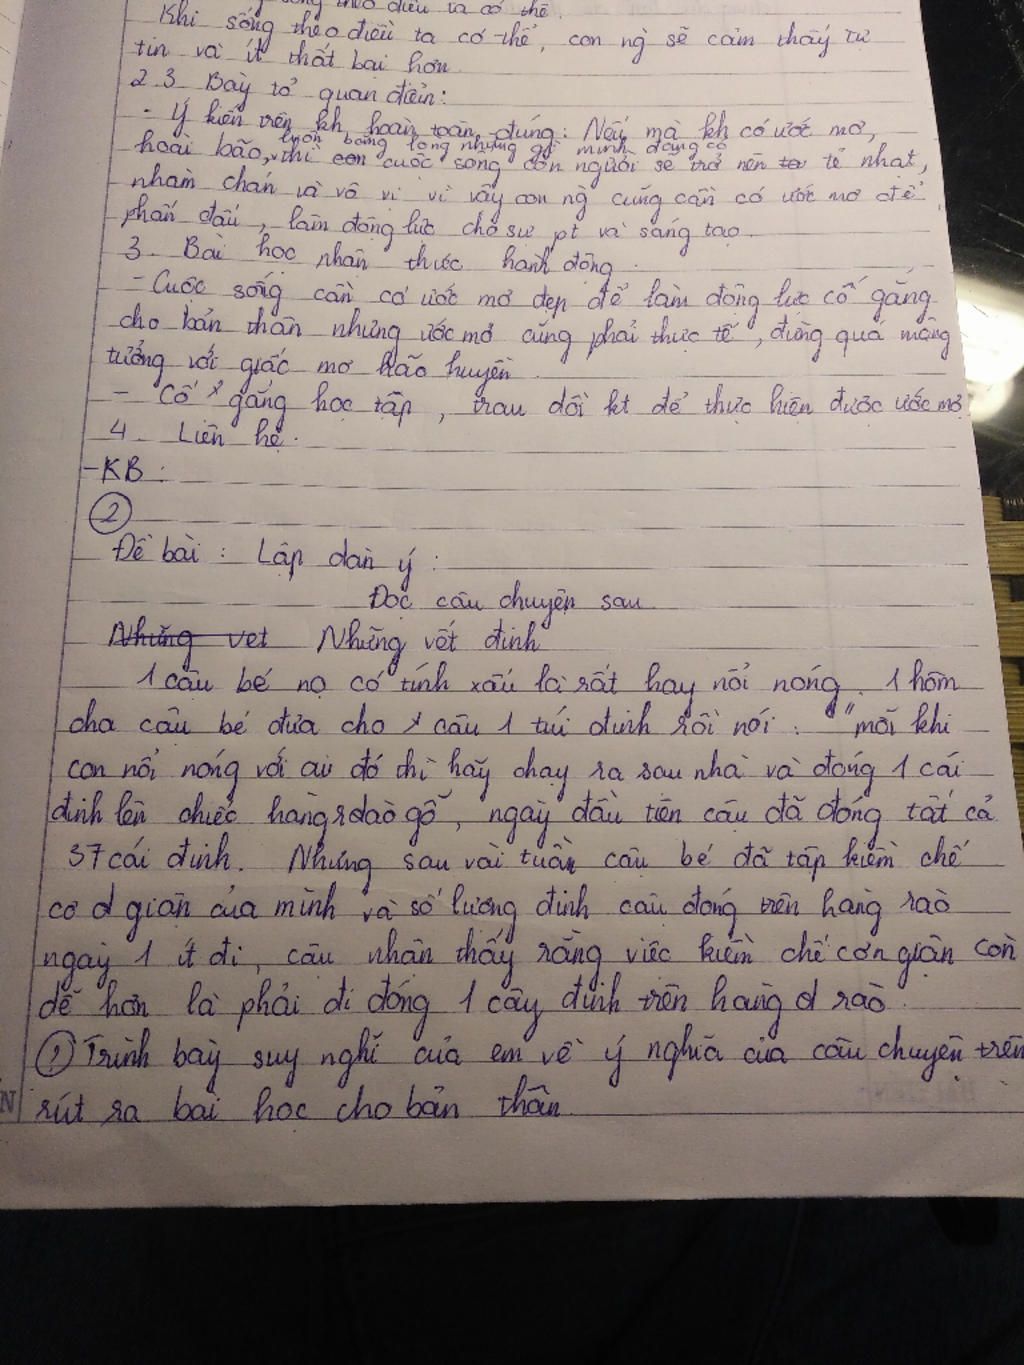 sống theo điều ta có thể.
Khi sống theo điều ta có thể, con ng sẽ cảm thấy tự
tin và ít thất bại hơn
2.3 Bày tỏ quan điểm:
- Ý kiến trên kh hoàn toàn đúng: Nếu mà kh có ước mơ,
luôn bằng lòng những gì mình đang có
hoài bão, thì con cuộc sống con người sẽ trở nên to tẻ nhạt,
nhàm chán và vô vị vì vậy con ng cũng cần có ước mơ để
phấn đấu, làm động lực cho sự pt và sáng tạo.
3. Bài học nhận thức hành động.
- Cuộc sống cần có ước mơ đẹp để làm động lực cố gắng
cho bản thân nhưng ước mơ cũng phải thực tế, đừng quá mộng
tưởng với giấc mơ hão huyền.
- Cố gắng học tập, trau dồi kt để thực hiện được ước mơ
4. Liên hệ.
- KB:
2
Đề bài: Lập dàn ý:
Đọc câu chuyện sau
Những vet Những vết đinh
1 cậu bé nọ có tính xấu là rất hay nổi nóng. 1 hôm
cha cậu bé đưa cho cậu 1 túi đinh rồi nói: "mỗi khi
con nổi nóng với ai đó thì hãy chạy ra sau nhà và đóng 1 cái
đinh lên chiếc hàng rdào gỗ, ngày đầu tiên cậu đã đóng tất cả
37 cái đinh. Nhưng sau vài tuần cậu bé đã tập kiềm chế
cơ d giận của mình và số lượng đinh cậu đóng trên hàng rào
ngày 1 ít đi, cậu nhận thấy rằng việc kiềm chế cơn giận còn
dễ hơn là phải đi đóng 1 cây đinh trên hàng d rào.
① Trình bày suy nghĩ của em về ý nghĩa của câu chuyện trên
rút ra bài học cho bản thân.